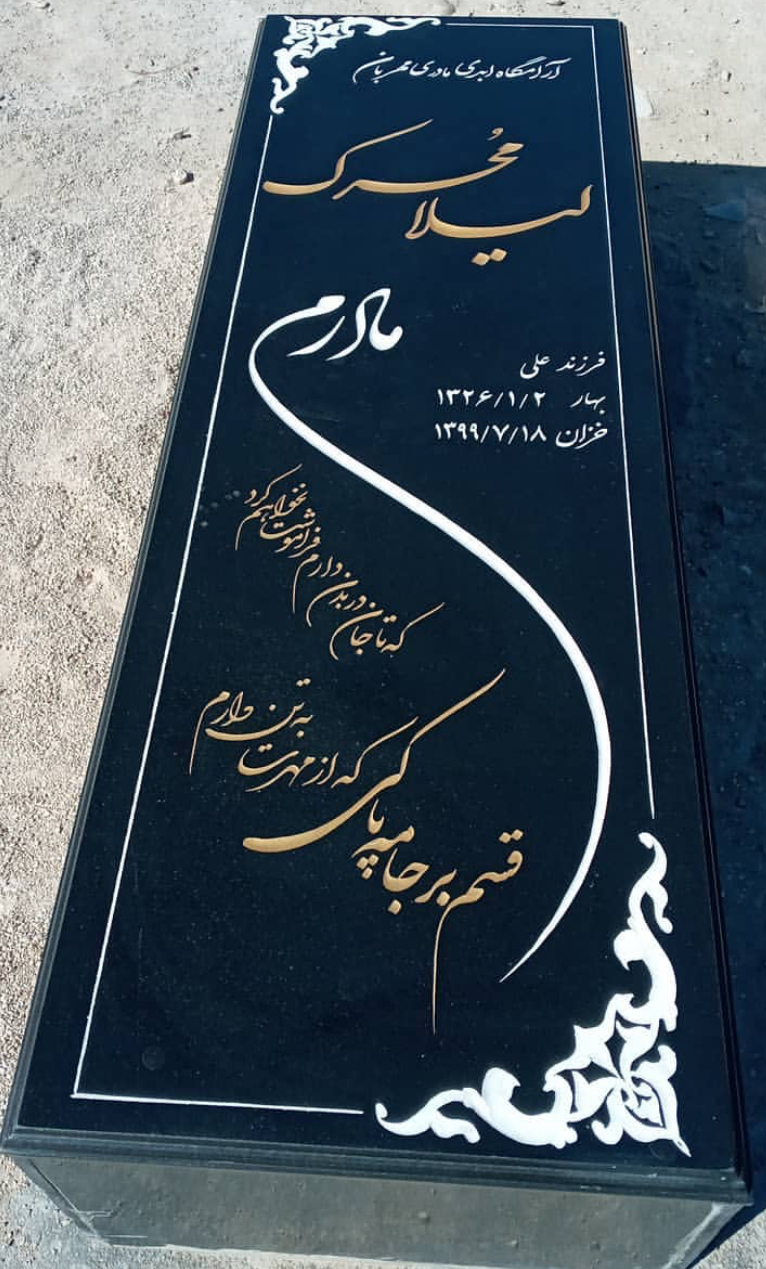 آرامگاه ابدی مادری مهربان
لیلا محرک
مادرم
فرزند علی
بهار ۱۳۲۶/۱/۲
خزان ۱۳۹۹/۷/۱۸
قسم بر جامه پاکی که از مهرت به تن دارم
که تا جان در بدن دارم فراموشت نخواهم کرد